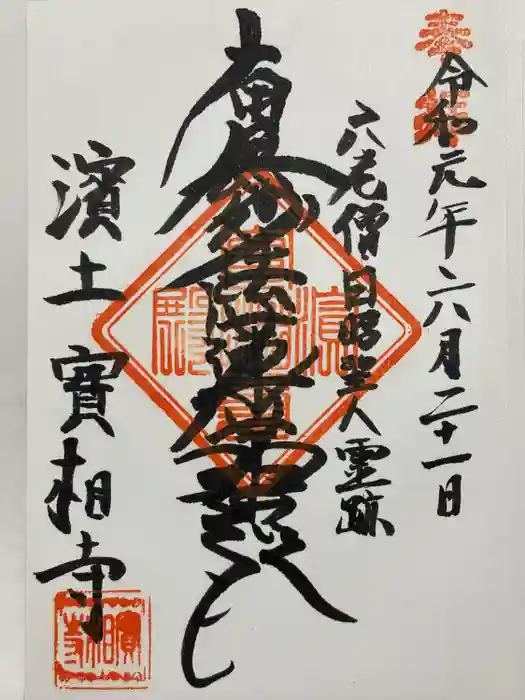 奉拝
令和元年六月二十一日
六老僧日昭聖人霊跡
南無妙法蓮華経
濱土 寳相寺